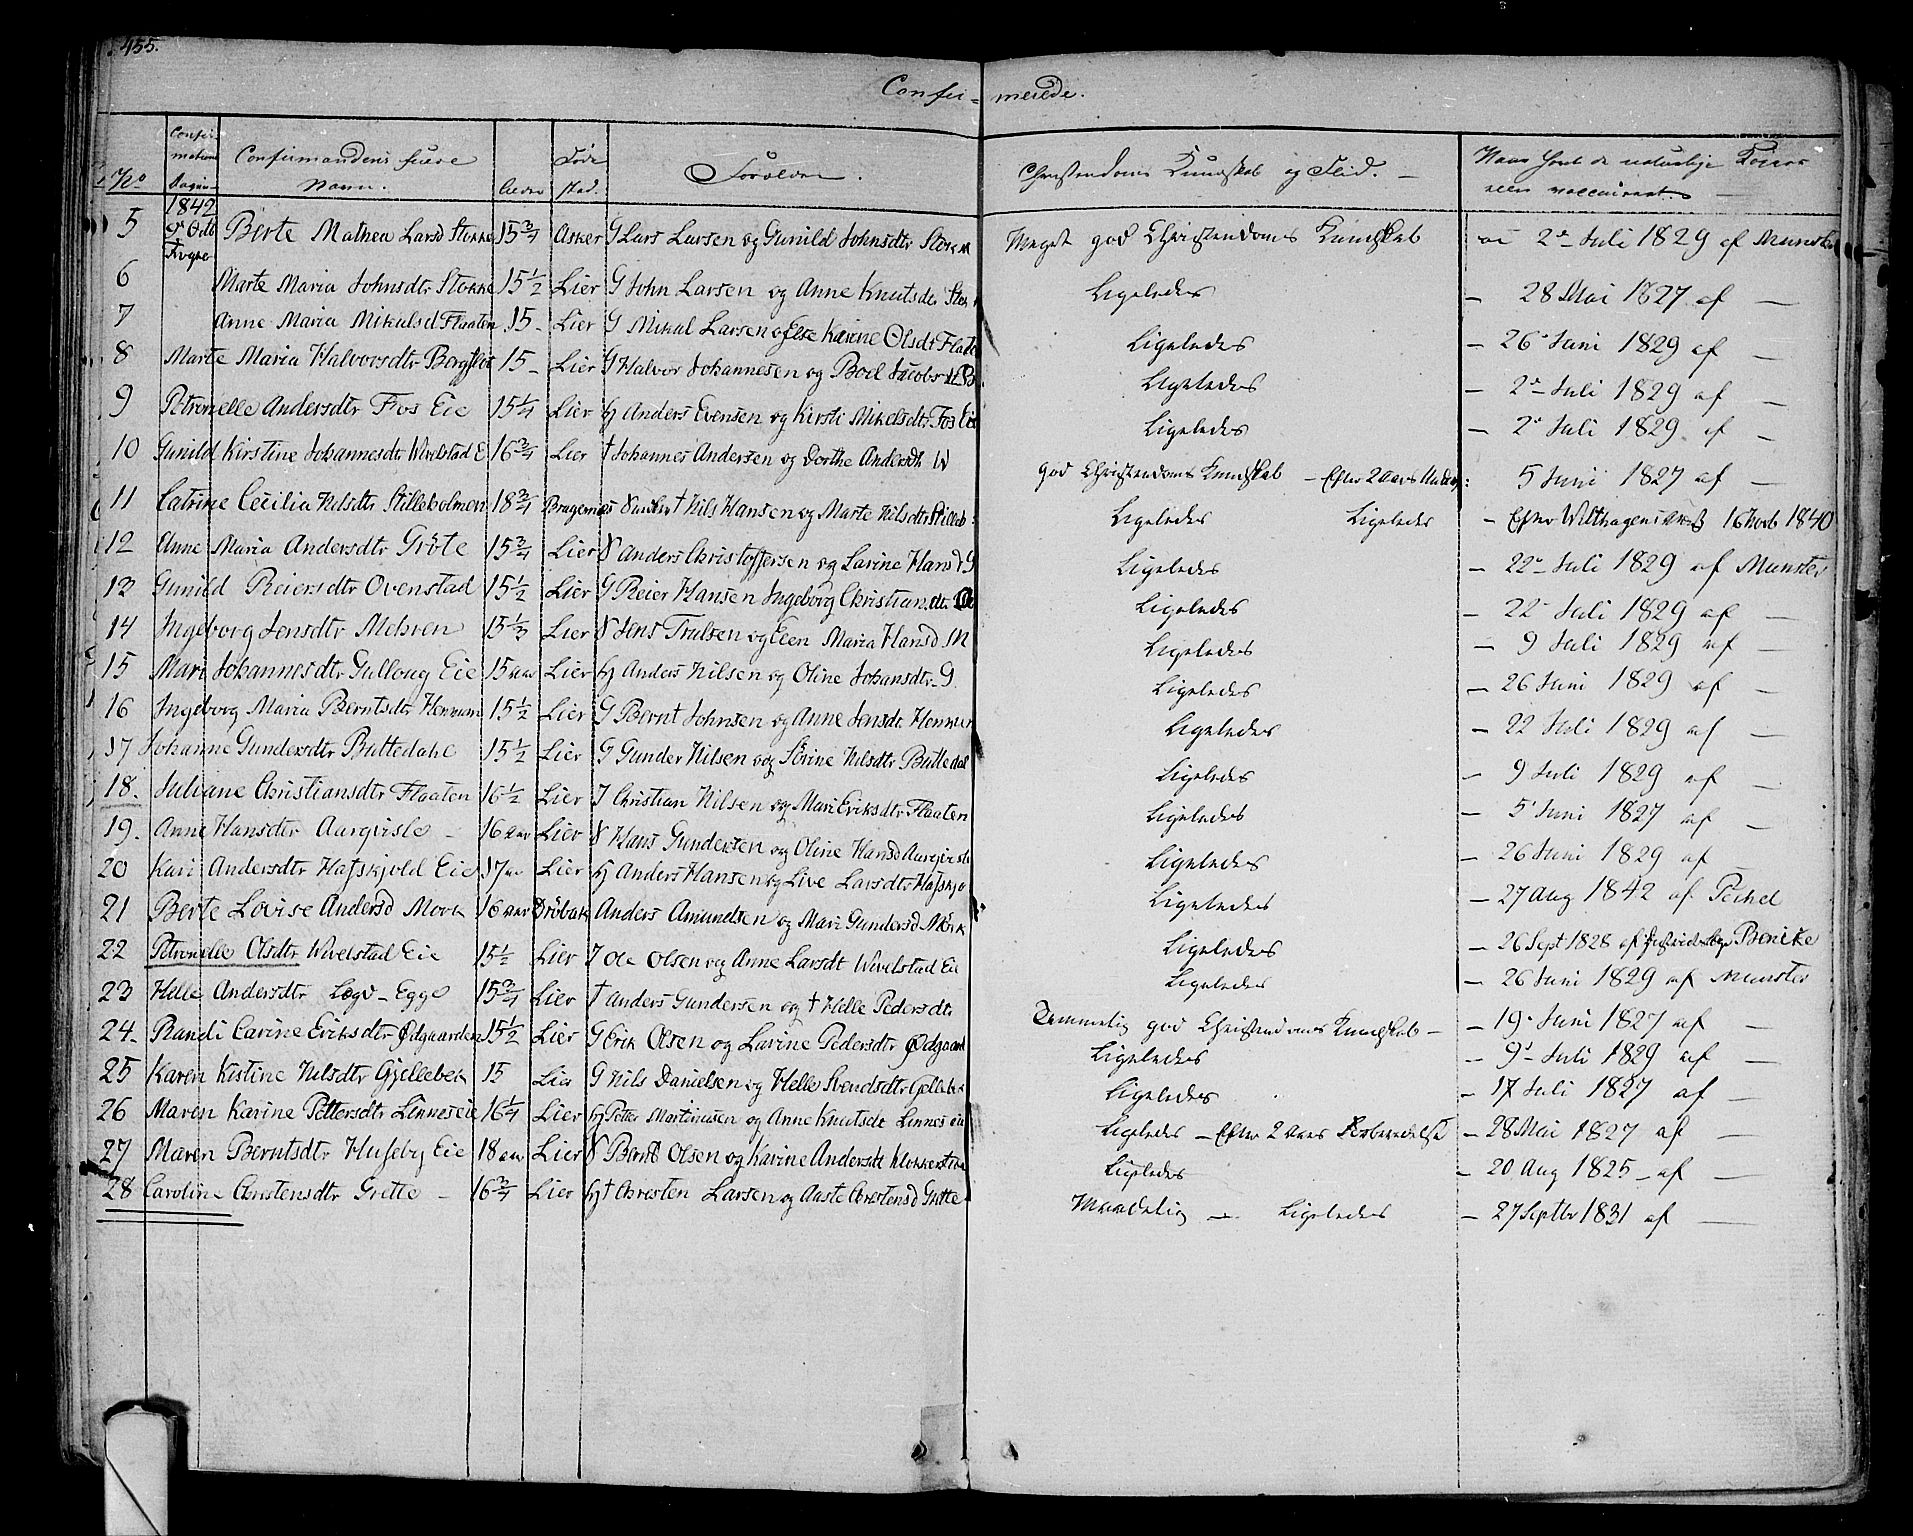 455.
Confir- merede.
No Confirmations Dagen Confirmandens fulde Navn. Alder Føde Sted. Forældre. Christendoms Kundskab og Flid. Havt de naturlige Kopper eller vaccineret.
5 1842 9 Octb Berte Mathea Larsd Stokke 15 3/4 Asker G Lars Larsen og Gunild Johnsdtr Meget god Christendoms Kundskab 2 Juli 1829 af
6 Marte Maria Johnsdtr Stokke 15 1/2 Lier G John Larsen og Anne Knutsdtr Ligeledes — 28 Mai 1827 af —
7 Anne Maria Mikulsd Flaaten 15 - Lier G Mikal Larsen og Else Karine Olsdtr Ligeledes — 26 Juni 1829 af —
8 Marte Maria Halvorsdtr 15 - Lier G Halvor Johannesen og Boel Ligeledes — 2 Juli 1829 af —
9 Petronelle Andersdtr Fos Eie 15 1/4 Lier Hj Anders Evensen og Kirsti Mikelsdtr Fos Ligeledes — 2 Juli 1829 af —
10 Gunild Kirstine Johannesdtr Wivelstad E 16 3/4 Lier † Johannes Andersen og Dorthe Andersdtr W god Christendoms Kundskab — Efter 2 Aars 5 Juni 1827 af —
11 Catrine Cecilia Nilsdtr Stilleholmen 18 3/4 Bragernæs † Nils Hansen og Marte Nilsdtr Ligeledes Ligeledes — Efter 16 Novb 1840
12 Anne Maria Andersdtr Gröte 15 3/4 Lier 8 Anders Christoffersen og Lavine Hansd G Ligeledes — 22 Juli 1829 af Munster
13 Gunild Reiersdtr Ovenstad 15 1/2 Lier G Reier Hansen Ingeborg Christiansdtr Ligeledes — 22 Juli 1829 af —
14 Ingeborg Jensdtr Mehren 15 1/3 Lier 8 Jens Trulsen og Maria Hansd M Ligeledes — 9 Juli 1829 af —
15 Mari Johannesdtr Gulloug Eie 15 aar Lier Hj Anders Nilsen og Oline Johansdtr G. Ligeledes — 26 Juni 1829 af —
16 Ingeborg Maria Berntsdtr 15 1/2 Lier G Bernt Johnsen og Anne Jensdtr Ligeledes — 22 Juli 1829 af —
17 Johanne Gundersdtr Buttedahl 15 1/2 Lier G Gunder Nilsen og Sörine Nilsdtr Buttedal Ligeledes — 9 Juli 1829 af —
18. Juliane Christiansdtr Flaaten 16 1/2 Lier I Christian Nilsen og Mari Eriksdtr Flaaten Ligeledes — 5 Juni 1827 af —
19. Anne Hansdtr Aarqvisle — 16 aar Lier 8 Hans Gundersen og Oline Hansd Ligeledes — 26 Juni 1829 af —
20 Kari Andersdtr Hafskjold Eie 17 Lier Hj Anders Hansen og Live Larsdtr Ligeledes — 27 Aug 1842 af
21 Berte Lovise Andersd Mörk 16 aar Dröbak Anders Amundsen og Mari Gundersd Mörk Ligeledes — 26 Sept 1828 af
22 Petronelle Olsdtr Wivelstad Eie 15 1/2 Lier I Ole Olsen og Anne Larsdt Wivelstad Eie Ligeledes — 26 Juni 1829 af Munster
23 Helle Andersdtr Egge 15 3/4 Lier † Anders Gundersen og † Helle Pedersdtr Temmelig god Christendoms Kundskab — — 19 Juni 1827 af —
24. Randi Carine Eriksdtr Ødgaarden 15 1/2 Lier G Erik Olsen og Lavine Pedersdtr Ligeledes — 9 Juli 1829 af —
25 Karen Kistine Nilsdtr Gjellebek 15 Lier G Nils Danielsen og Helle Svendsdtr Ligeledes — 17 Juli 1827 af —
26 Maren Karine Pettersdtr Linneseie 16 1/4 Lier Hj Petter Martinusen og Anne Knutsdt Linnes Ligeledes — Efter 2 Aars Forberedelse — 28 Mai 1827 af —
27 Maren Berntsdtr Huseby Eie 18 aar Lier 8 Bernt Olsen og Karine Andersdt Ligeledes — 20 Aug 1825 — af —
28 Caroline Christensdtr Grette — 16 3/4 Lier Hj † Christen Larsen og Aaste Grette Maadelig — Ligeledes — 27 Septbr 1831 af —